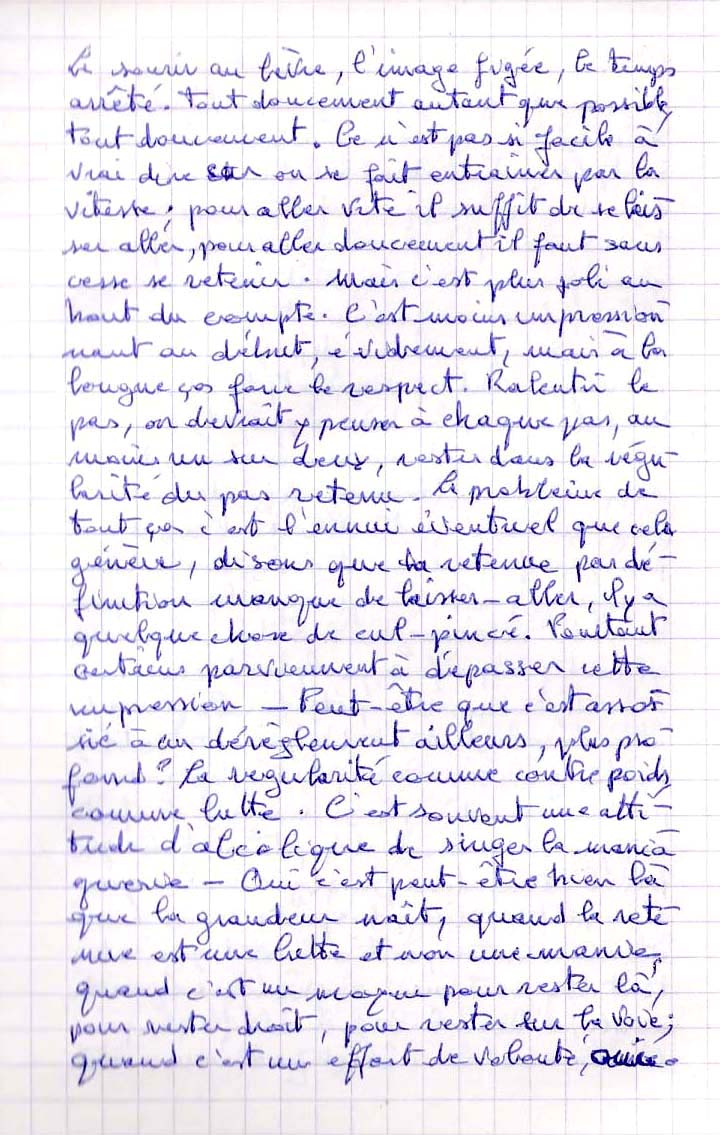 Le sourir au lèvre, l'image figée, le temps
arrêté. Tout doucement autant que possible,
tout doucement. Ce n'est pas si facile à
vrai dire on se fait entrainer par la
vitesse ; pour aller vite il suffit de se lais
ser aller, pour aller doucement il faut sans
cesse se retenir. Mais c'est plus joli au
bout du compte. C'est moins impression
nant au début, évidement, mais à la
longue ça force le respect. Ralentir le
pas, on devrait y penser à chaque pas, au
moins un sur deux, rester dans la régu-
larité du pas retenu. Le problème de
tout ça c'est l'ennui éventuel que cela
génère, disons que la retenue par dé-
finition manque de laisser-aller, il y a
quelque chose de cul-pincé. Pourtant
certains parviennent à dépasser cette
impression — Peut-être que c'est asso
cié à un dérèglement ailleurs, plus pro
fond ? La regularité comme contre poids,
comme lutte. C'est souvent une atti-
tude d'alcoolique de singer la mania
querie — Oui c'est peut-être bien là
que la grandeur naît, quand la rete
nue est une lutte et non une manie,
quand c'est un moyen pour rester là,
pour rester droit, pour rester sur la voie ;
quand c'est un effort de volonté,